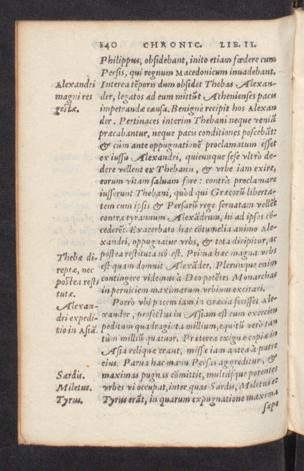 140 CHRONIC. LIB. II.
Philippus, obsidebant, inito etiam fœdere cum
Persis, qui regnum Macedonicum invadebant.
Alexandri
magni res
gestæ.
Interea tẽporis dum obsidet Thebas Alexan-
der, legatos ad eum mittũt Athenienses pacis
impetrandæ causa. Benignè recipit hos Alexan
der. Pertinaces interim Thebani neque veniã
præcabantur, neque pacis conditiones poscebãt:
& cùm ante oppugnationẽ proclamatum esset
ex iussu Alexandri, quicunque sese vltrò de-
dere vellent ex Thebanis, & vrbe iam exire,
eorum vitam saluam fore: contrà proclamare
iusserunt Thebani, quòd qui Græcorũ liberta-
tem cum ipsis & Persarũ rege seruatam vellẽt
contra tyrannum Alexãdrum, hi ad ipsos cõ-
cederẽt. Exacerbato hac cõtumelia animo Ale-
xandri, oppugnatur vrbs, & tota diripitur, ac
Thebæ di-
reptæ, nec
postea resti
tutæ.
postea restituta nõ est. Prima hæc magna vrbs
est quam domuit Alexãder. Plerunque enim
contingere videmus à Deo potẽtes Monarchas
in perniciem maximarum vrbium excitari.
Alexan-
dri expedi-
tio in Asiã.
Porrò vbi pacem iam in Græcia fecisset Ale-
xander, profectus in Asiam est cum exercitu
peditum quadraginta millium, equitũ verò tan
tùm millib quatuor. Præterea exiguæ copiæ in
Asia reliquæ erant, missæ iam antea à patre
eius. Parua hac manu Persas agreditur, &
Sardis.
Miletus.
Tyrus.
maximas pugnas cõmittit, multasque potentes
vrbes vi occupat, inter quas Sardis, Miletus et
Tyrus erãt, in quarum expugnatione maxima
sæpe